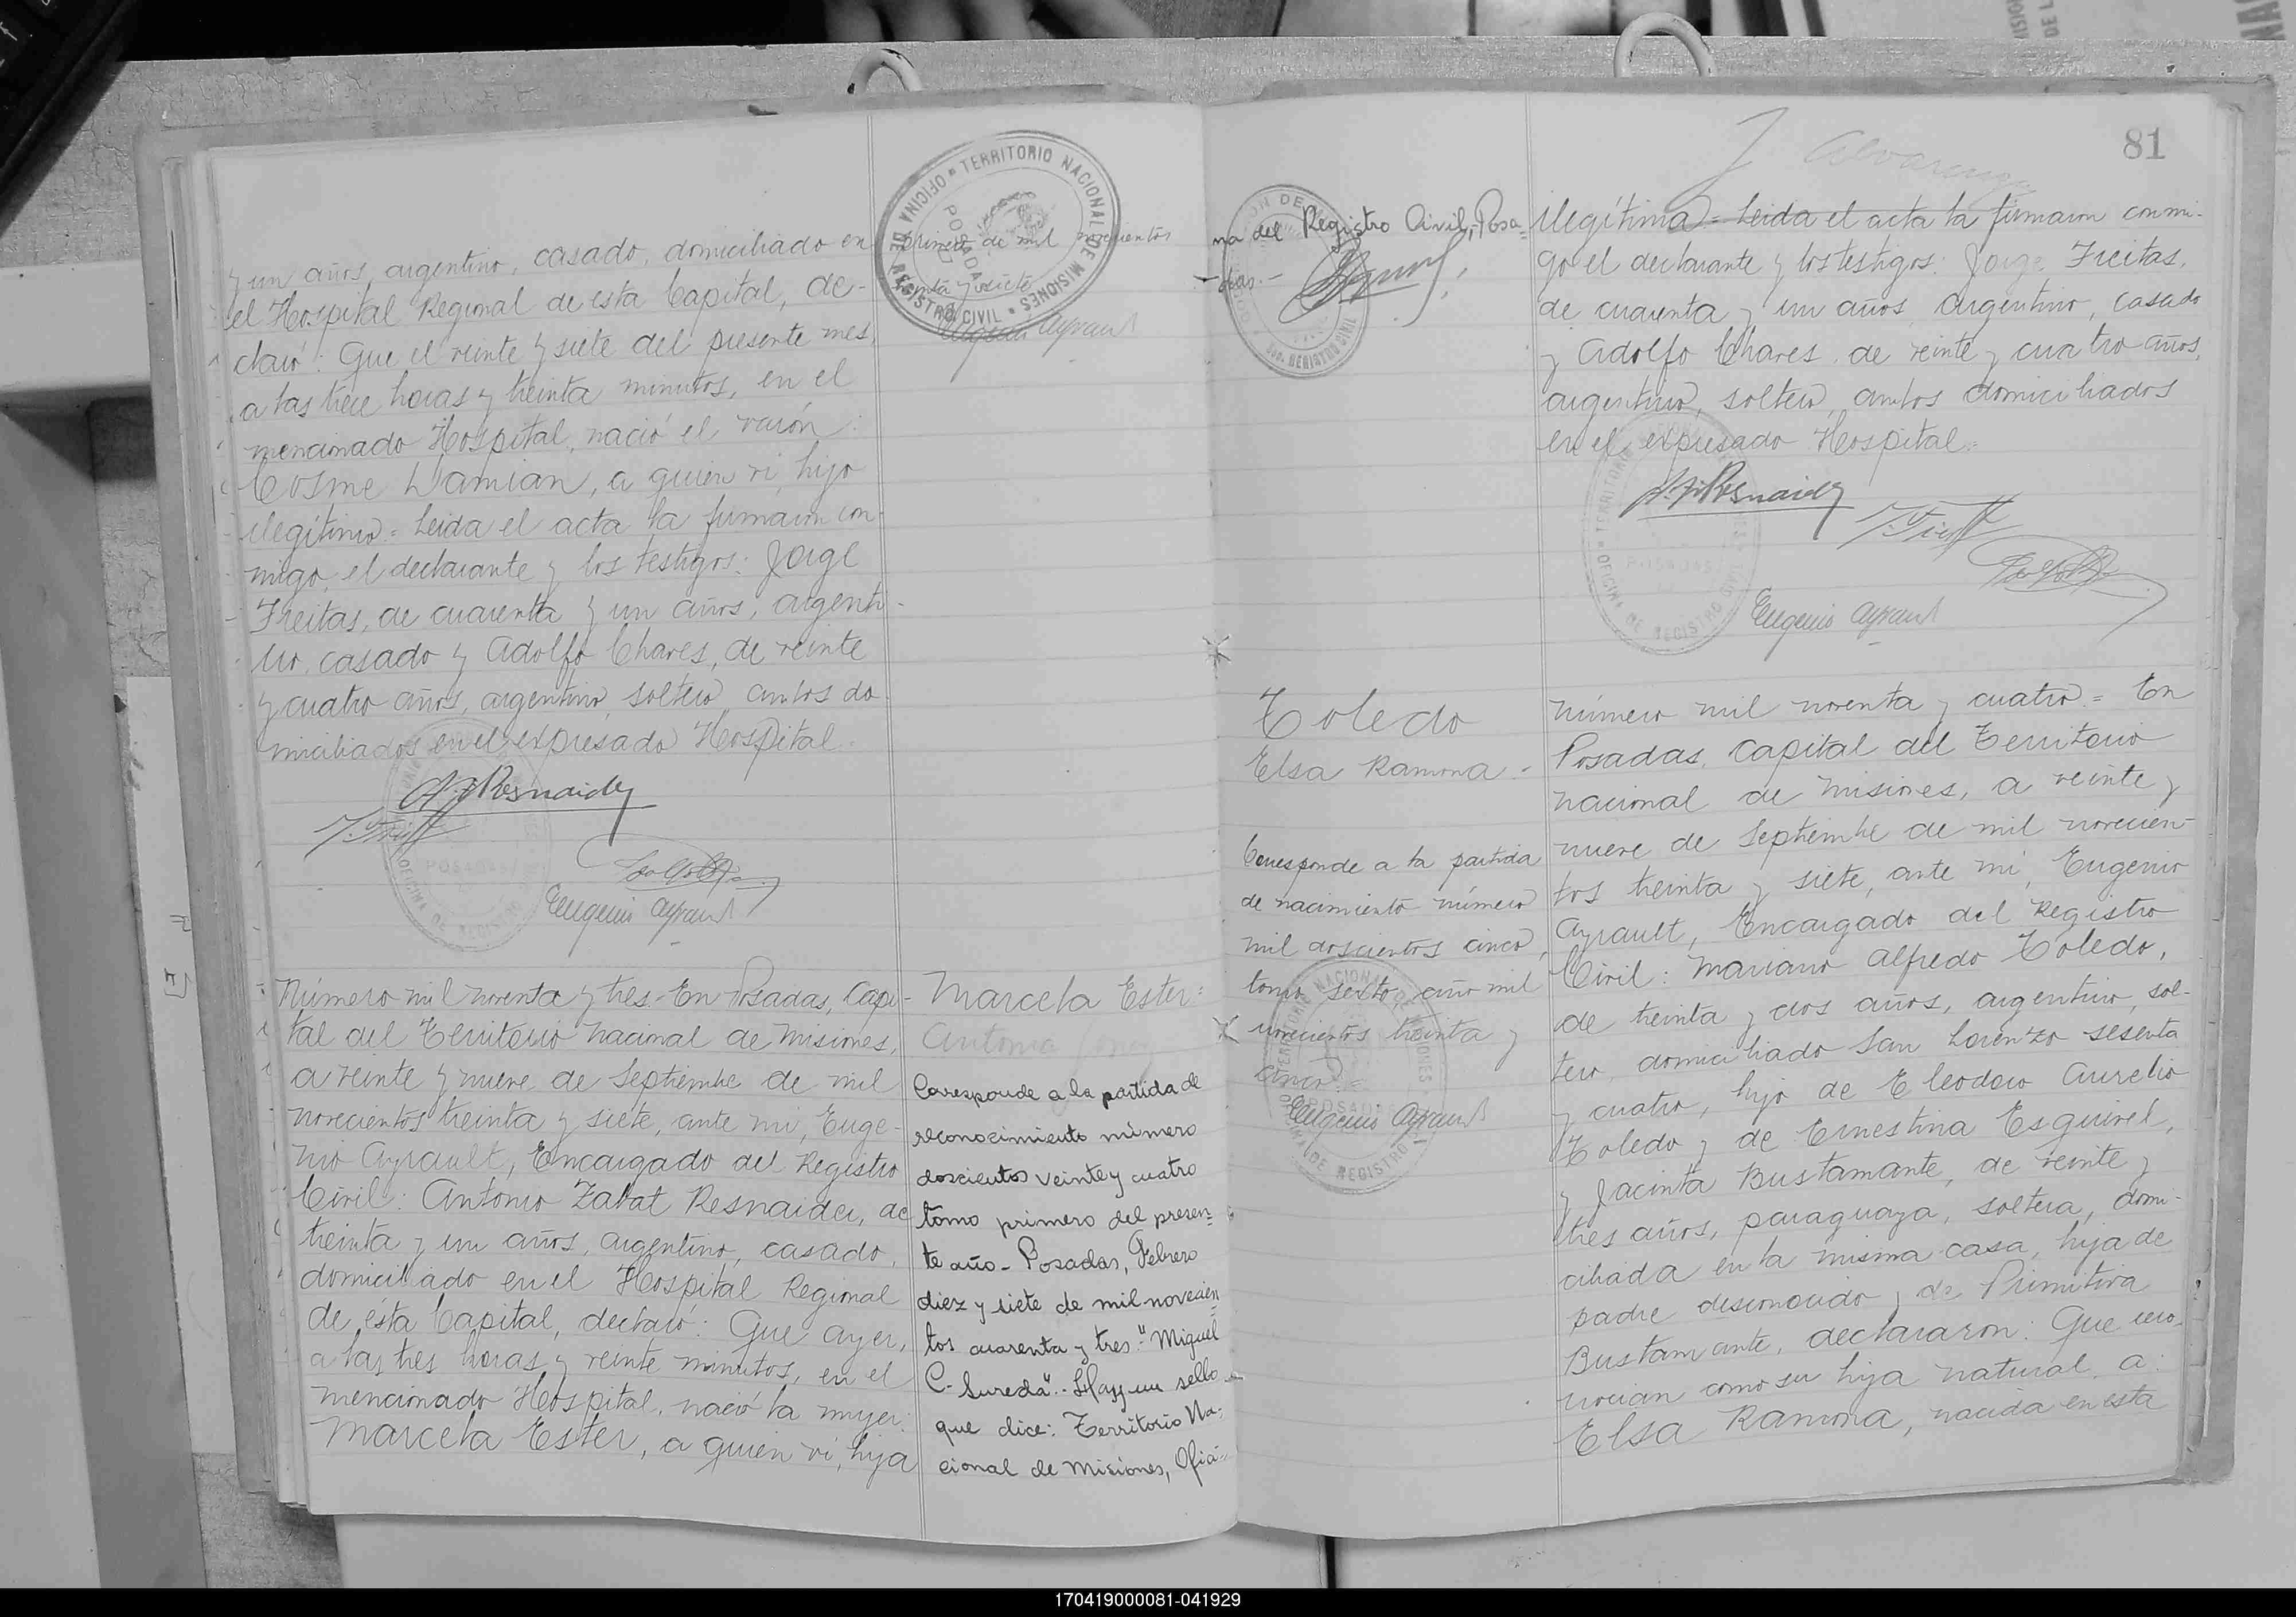 y un años, argentino, casado, domiciliado en
el Hospital Regional de esta Capital, de-
claró: Que el veinte y siete del presente mes,
a las trece horas y treinta minutos, en el
mencionado Hospital, nació el varón:
Cosme Damian, a quien vi, hijo
ilegítimo = Leida el acta la firmaron con-
migo, el declarante y los testigos: Jorge
Freitas, de cuarenta y un años, argenti-
no, casado y Adolfo Chares, de veinte
y cuatro años, argentino, soltero, ambos do-
miciliados en el expresado Hospital.
Eugenio Ayrault
OFICINA DE REGISTRO CIVIL
POSADAS
TERRITORIO NACIONAL DE MISIONES
OFICINA DE REGISTRO CIVIL
POSADAS
primero de mil novecientos
treinta y siete
Eugenio Ayrault
Número mil noventa y tres = En Posadas, Capi-
tal del Territorio Nacional de Misiones,
a veinte y nueve de Septiembre de mil
novecientos treinta y siete, ante mi, Euge-
nio Ayrault, Encargado del Registro
Civil: Antonio Zabat Resnaider, de
treinta y un años, argentino, casado,
domiciliado en el Hospital Regional
de ésta Capital, declaró: Que ayer,
a las tres horas y veinte minutos, en el
mencionado Hospital, nació la mujer:
Marcela Ester, a quien vi, hija
Marcela Ester =
Antonia
Corresponde a la partida de
reconocimiento número
doscientos veinte y cuatro
tomo primero del presen=
te año - Posadas, Febrero
diez y siete de mil novecien
tos cuarenta y tres: "Miguel
C. Sureda".- Hay un sello
que dice: Territorio Na=
cional de Misiones, Ofici=
na del Registro Civil,-Posa=
-das.-
81
Alvarenga
ilegítima = Leida el acta la firmaron conmi-
go el declarante y los testigos: Jorge Freitas,
de cuarenta y un años, argentino, casado
y Adolfo Chares, de veinte y cuatro años,
argentino, soltero, ambos domiciliados
en el expresado Hospital =
Eugenio Ayrault
Toledo
Elsa Ramona =
Corresponde a la partida
de nacimiento número
mil doscientos cinco,
tomo sexto, año mil
novecientos treinta y
cinco. =
Eugenio Ayrault
Número mil noventa y cuatro = En
Posadas, Capital del Territorio
Nacional de Misiones, a veinte y
nueve de Septiembre de mil novecien-
tos treinta y siete, ante mi, Eugenio
Ayrault, Encargado del Registro
Civil: Mariano Alfredo Toledo,
de treinta y dos años, argentino, sol-
tero, domiciliado San Lorenzo sesenta
y cuatro, hijo de Eleodoro Aurelio
Toledo y de Ernestina Esquivel,
y Jacinta Bustamante, de veinte y
tres años, paraguaya, soltera, domi-
ciliada en la misma casa, hija de
padre desconocido y de Primitiva
Bustamante, declararon: Que reco-
nocian como su hija natural a:
Elsa Ramona, nacida en esta
170419000081-041929